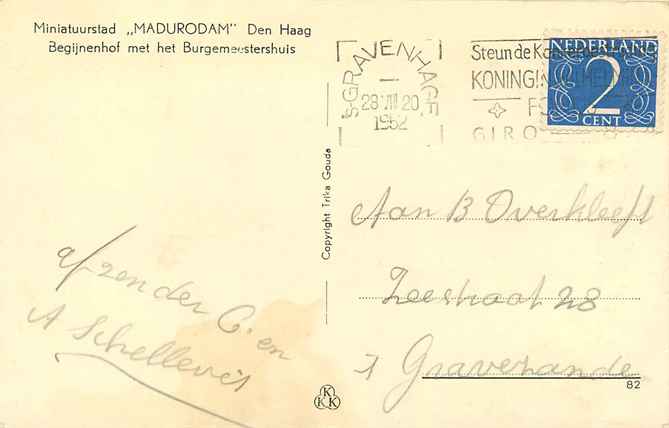 Miniatuurstad „MADURODAM” Den Haag
Begijnenhof met het Burgemeestershuis
'S-GRAVENHAGE
28 VIII 20
1952
Steun de
KONINGIN WILHELMINA
FO
GIRO 8
NEDERLAND
2
CENT
Copyright Trika Gouda
Aan B Overkleeft
Zeestraat 28
s Gravezande
afzender C. en
A Schellevis
82
KKK